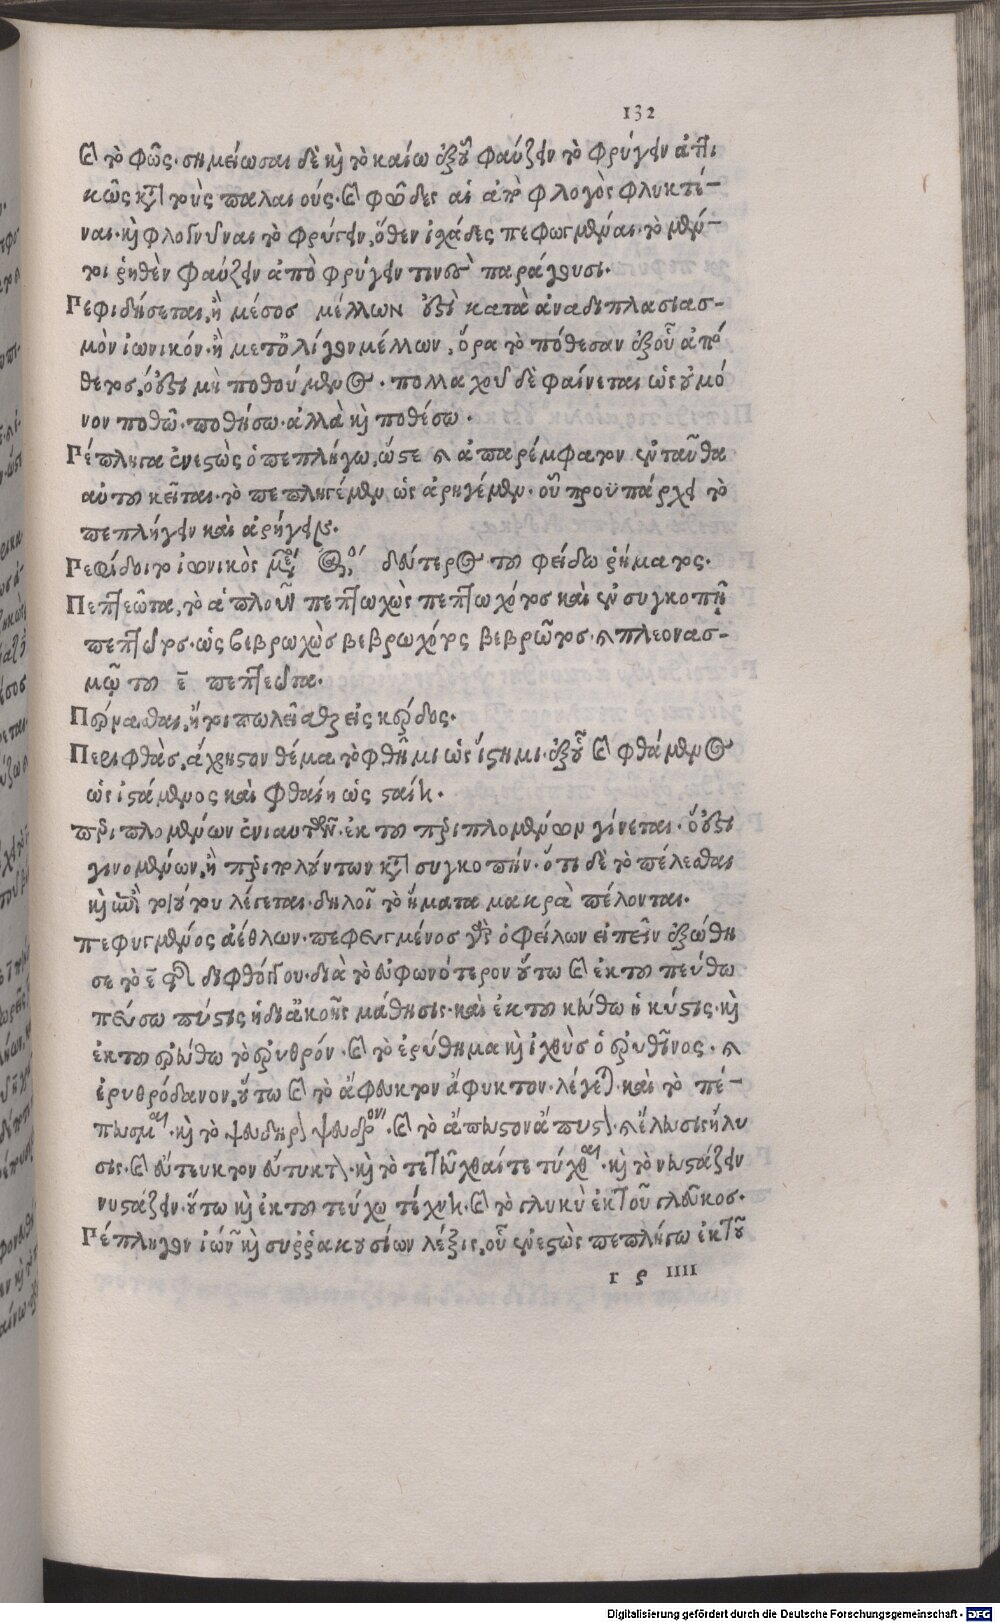 132
καὶ τὸ φῶς· σημείωσαι δὲ καὶ τὸ καίω ἐξ οὗ φαύζειν τὸ φρύγειν ἀττι
κῶς κατὰ τοὺς παλαιούς· καὶ φῶδες αἱ ἀπὸ φλογὸς φλυκτί-
ναι· καὶ φλογνύναι τὸ φρύγειν, ὅθεν ἰχάδες πεφωγμέναι· τὸ μέν-
τοι ῥηθὲν φαύζειν ἀπὸ φρύγειν τινὲς παράγουσι.
Πεφιδήσεται, ἢ μέσος μέλλων ἐστὶ κατὰ ἀναδιπλασιασ-
μὸν ἰωνικόν· ἢ μετ' ὀλίγον μέλλων, ὅρα τὸ πόθεσαν ἐξ οὗ ἀπό
θετος, ὅ ἐστι μὴ ποθούμενος· πολλαχοῦ δὲ φαίνεται ὡς οὐ μό
νον ποθῶ· ποθήσω· ἀλλὰ καὶ ποθέσω.
Πέπληγα ἐνεστὼς ὁ πεπλήγω, ὥστε καὶ ἀπαρέμφατον ἐνταῦθα
αὐτοῦ κεῖται· τὸ πεπληγέμεν ὡς ἀρηγέμεν· οὗ προϋπάρχει τὸ
πεπλήγειν καὶ ἀρήγειν.
Πεφίδοιτο ἰωνικὸς δεύτερος τοῦ φείδω ῥήματος.
Πεπτεῶτα, τὸ ἁπλοῦν πεπτωχὼς πεπτωχότος καὶ ἐν συγκοπῇ
πεπτῶτος· ὡς βεβρωχὼς βεβρωχότος βεβρῶτος· καὶ πλεονασ-
μῷ τοῦ ε̄ πεπτεῶτα.
Περνάσθαι, ἤτοι πωλεῖσθαι εἰς κέρδος.
Περιφθὰς, ἄχρηστον θέμα τὸ φθῆμι ὡς ἵστημι· ἐξ οὗ καὶ φθάμενος
ὡς ἱστάμενος καὶ φθαίη ὡς σταίη.
περιπλομένων ἐνιαυτῶν· ἐκ τοῦ περιπλομένων γίνεται· ὅ ἐστι
γινομένων, ἢ περιπλούντων κατὰ συγκοπήν· ὅτι δὲ τὸ πέλεσθαι
καὶ ἐπὶ τοιούτου λέγεται· δηλοῖ τὸ ἤματα μακρὰ πέλονται.
πεφυγμένος ἀέθλων· πεφευγμένος γὰρ ὀφείλων εἰπεῖν ἐξώθη
σε τὸ ε̄ τῆς διφθόγγου· διὰ τὸ εὐφωνότερον οὕτω καὶ ἐκ τοῦ πεύθω
πεύσω πύστις ἡ δι' ἀκοῆς μάθησις· καὶ ἐκ τοῦ κεύθω ἡ κύστις· καὶ
ἐκ τοῦ ἐρεύθω τὸ ἐρυθρόν· καὶ τὸ ἐρύθημα καὶ ἰχθὺς ὁ ἐρυθῖνος· καὶ
ἐρυθρόδανον, οὕτω καὶ τὸ ἄφευκτον ἄφυκτον· λέγεται· καὶ τὸ πέ-
πευσμαι· καὶ τὸ ψευδηρὸν ψευδρόν· καὶ τὸ ἄπευστον ἄπυστον· καὶ ἔλευσις ἤλυ
σις· καὶ εὔτευκτον εὔτυκτον· καὶ τὸ τετεῦχθαί τε τύχθαι· καὶ τὸ νευστάζειν
νυστάζειν· οὕτω καὶ ἐκ τοῦ τεύχω τέχνη· καὶ τὸ γλυκὺ ἐκ τοῦ γλεῦκος.
Πέπληγον ἰώνων καὶ συῤῥακουσίων λέξις, οὗ ἐνεστὼς πεπλήγω ἐκ τοῦ
r ϛ IIII